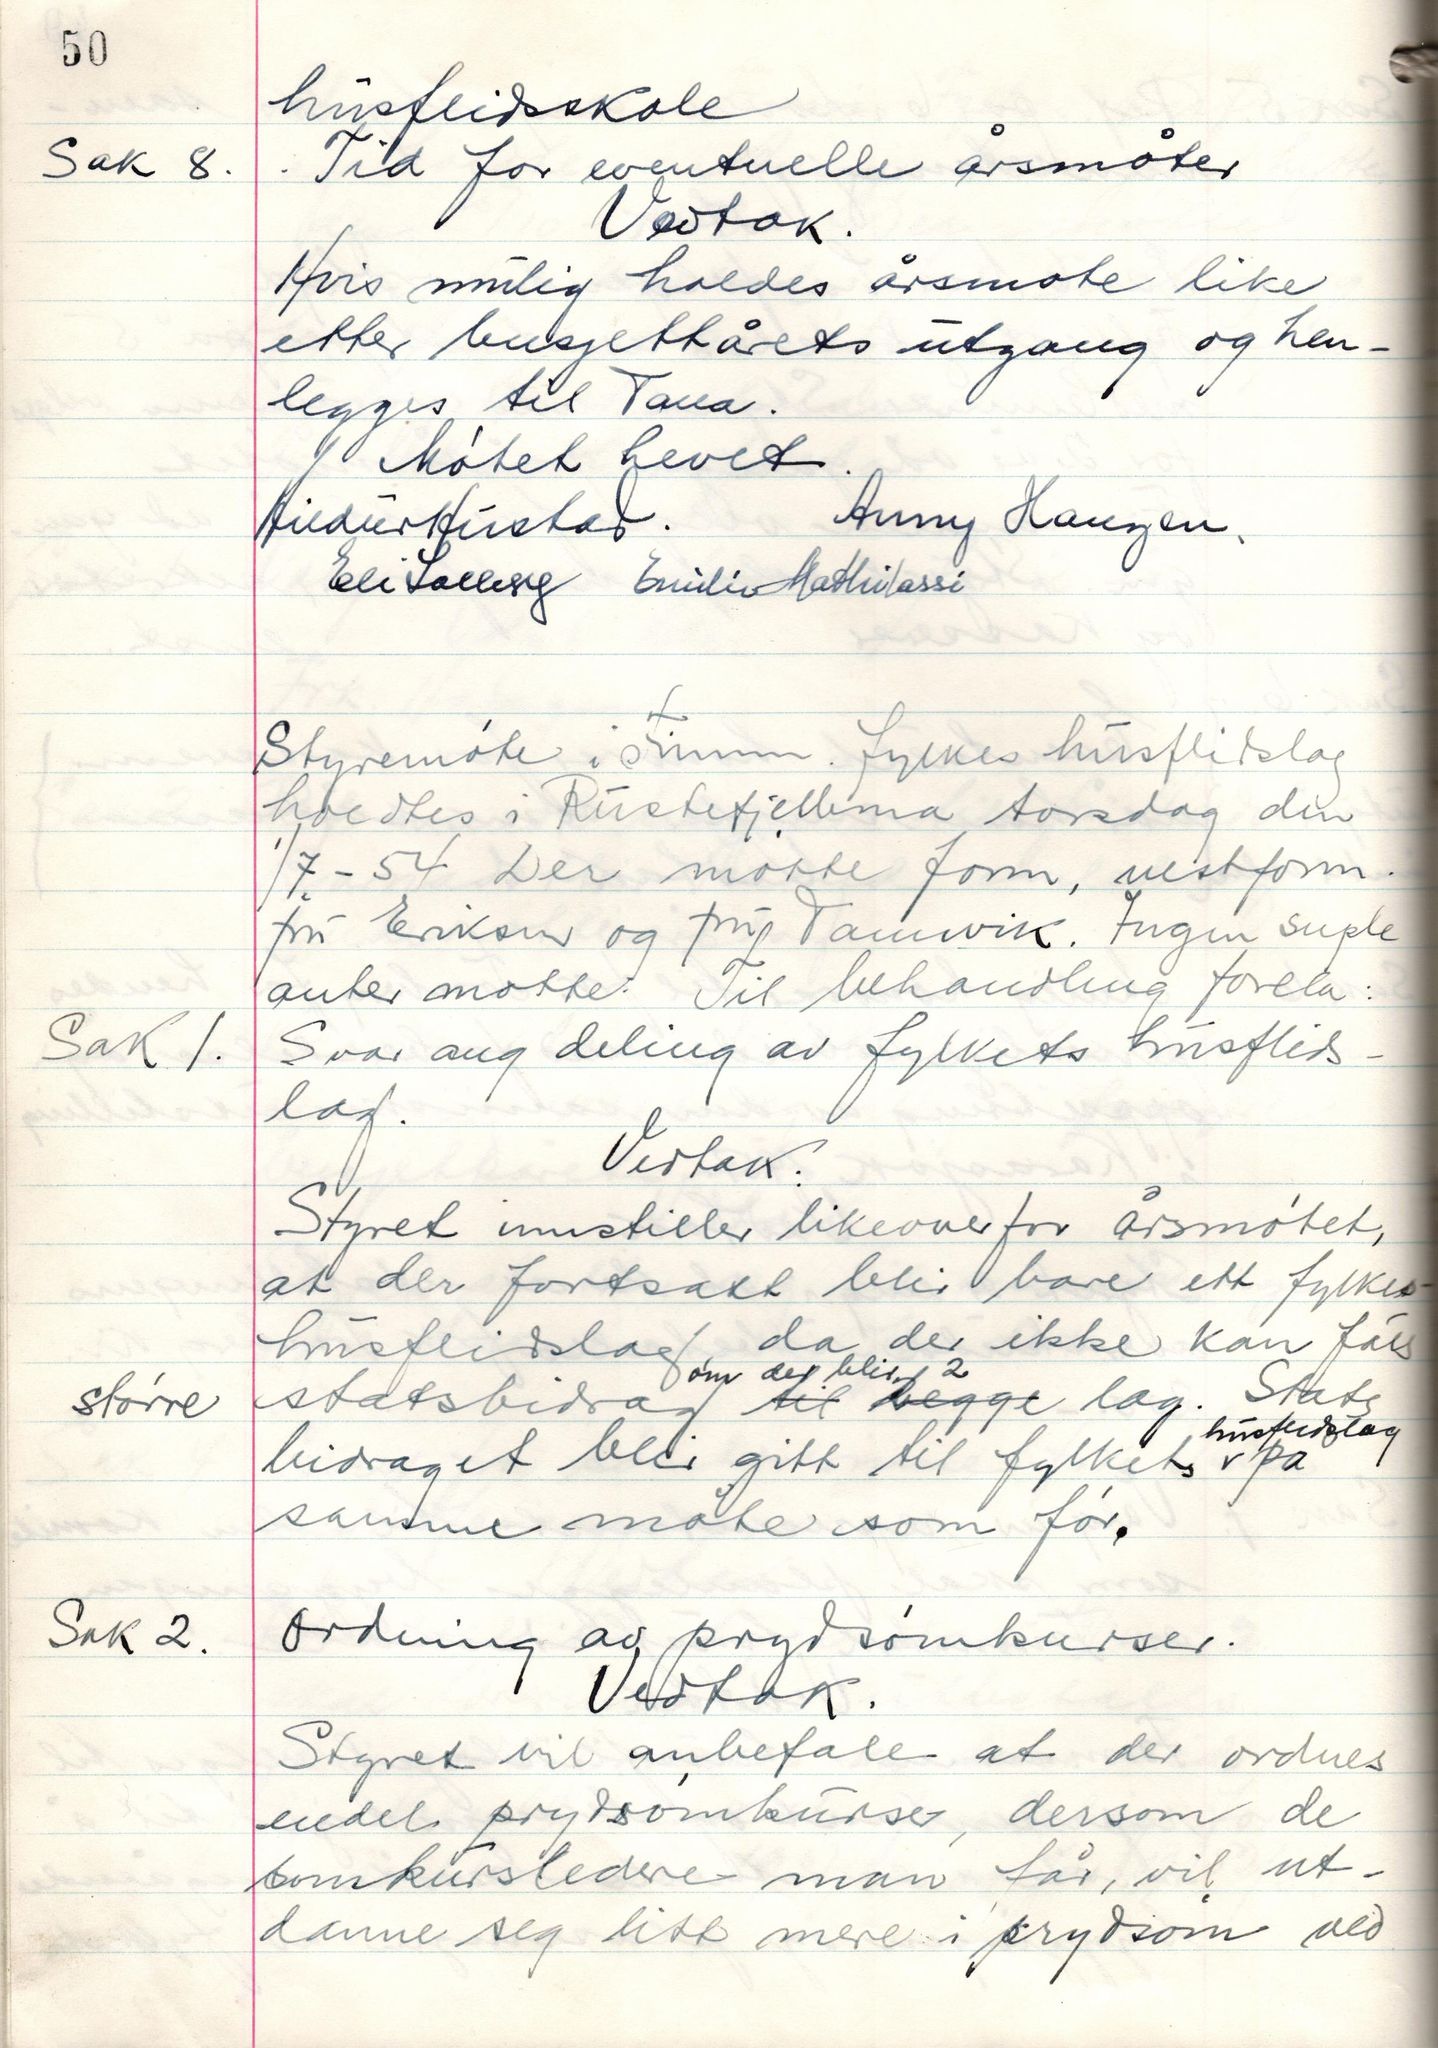 50
husflidsskole
Sak 8. Tid for eventuelle årsmøter
Vedtak.
Hvis mulig holdes årsmøte like
etter busjettårets utgang og hen-
legges til Tana.
Møtet hevet.
Hustad. Anny Haugen.
Eli Solberg Emilie Mathilassi
Styremøte i Finnm. fylkes husflidslag
holdtes i Rustefjellbma torsdag den
1/7-54 Der møtte form, nestform.
fru Eriksen og fru Tannvik. Ingen suple
anter møtte. Til behandling forelå:
Sak 1. Svar ang deling av fylkets husflids-
lag.
Vedtak:
Styret innstiller likeoverfor årsmøtet,
at der fortsatt blir bare ett fylkes-
husflidslag, da der ikke kan fåes
større statsbidrag om der blir 2 til begge lag. Stats
bidraget blir gitt til fylkets husflidslag på
samme måte som før.
Sak 2. Ordning av prydsømkurser.
Vedtak.
Styret vil anbefale at der ordnes
endel prydsømkurser, dersom de
sømkursledere man får, vil ut-
danne seg litt mere i prydsøm ved